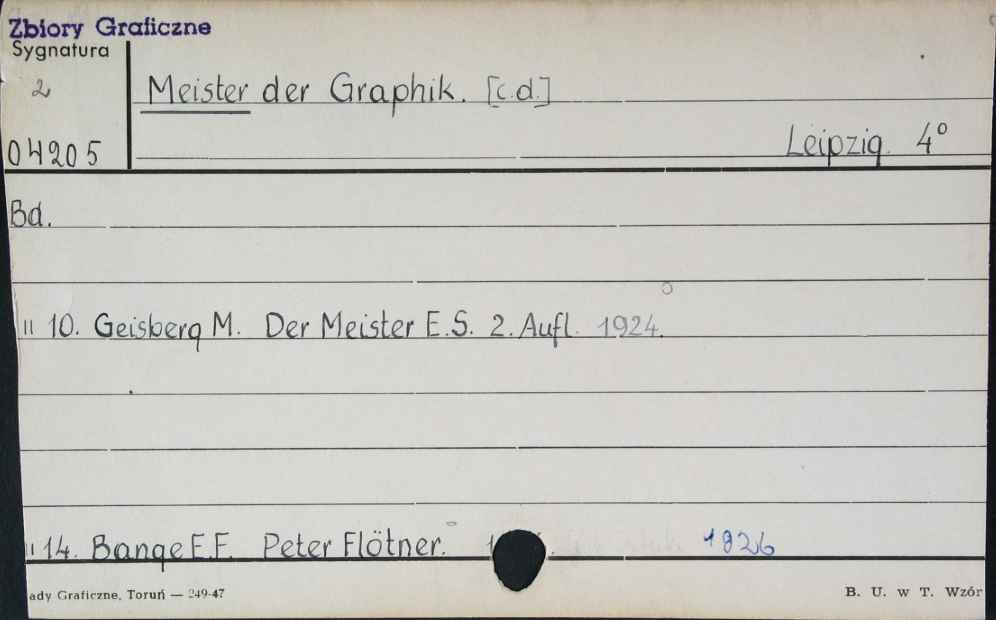 Zbiory Graficzne
Sygnatura
2
Meister der Graphik. [c.d.]
04205
Leipzig. 4°
Bd.
" 10. Geisberg M. Der Meister E.S. 2. Aufl. 1924.
" 14. Bange E.F. Peter Flötner. 1926
ady Graficzne, Toruń — 249-47
B. U. w T. Wzór